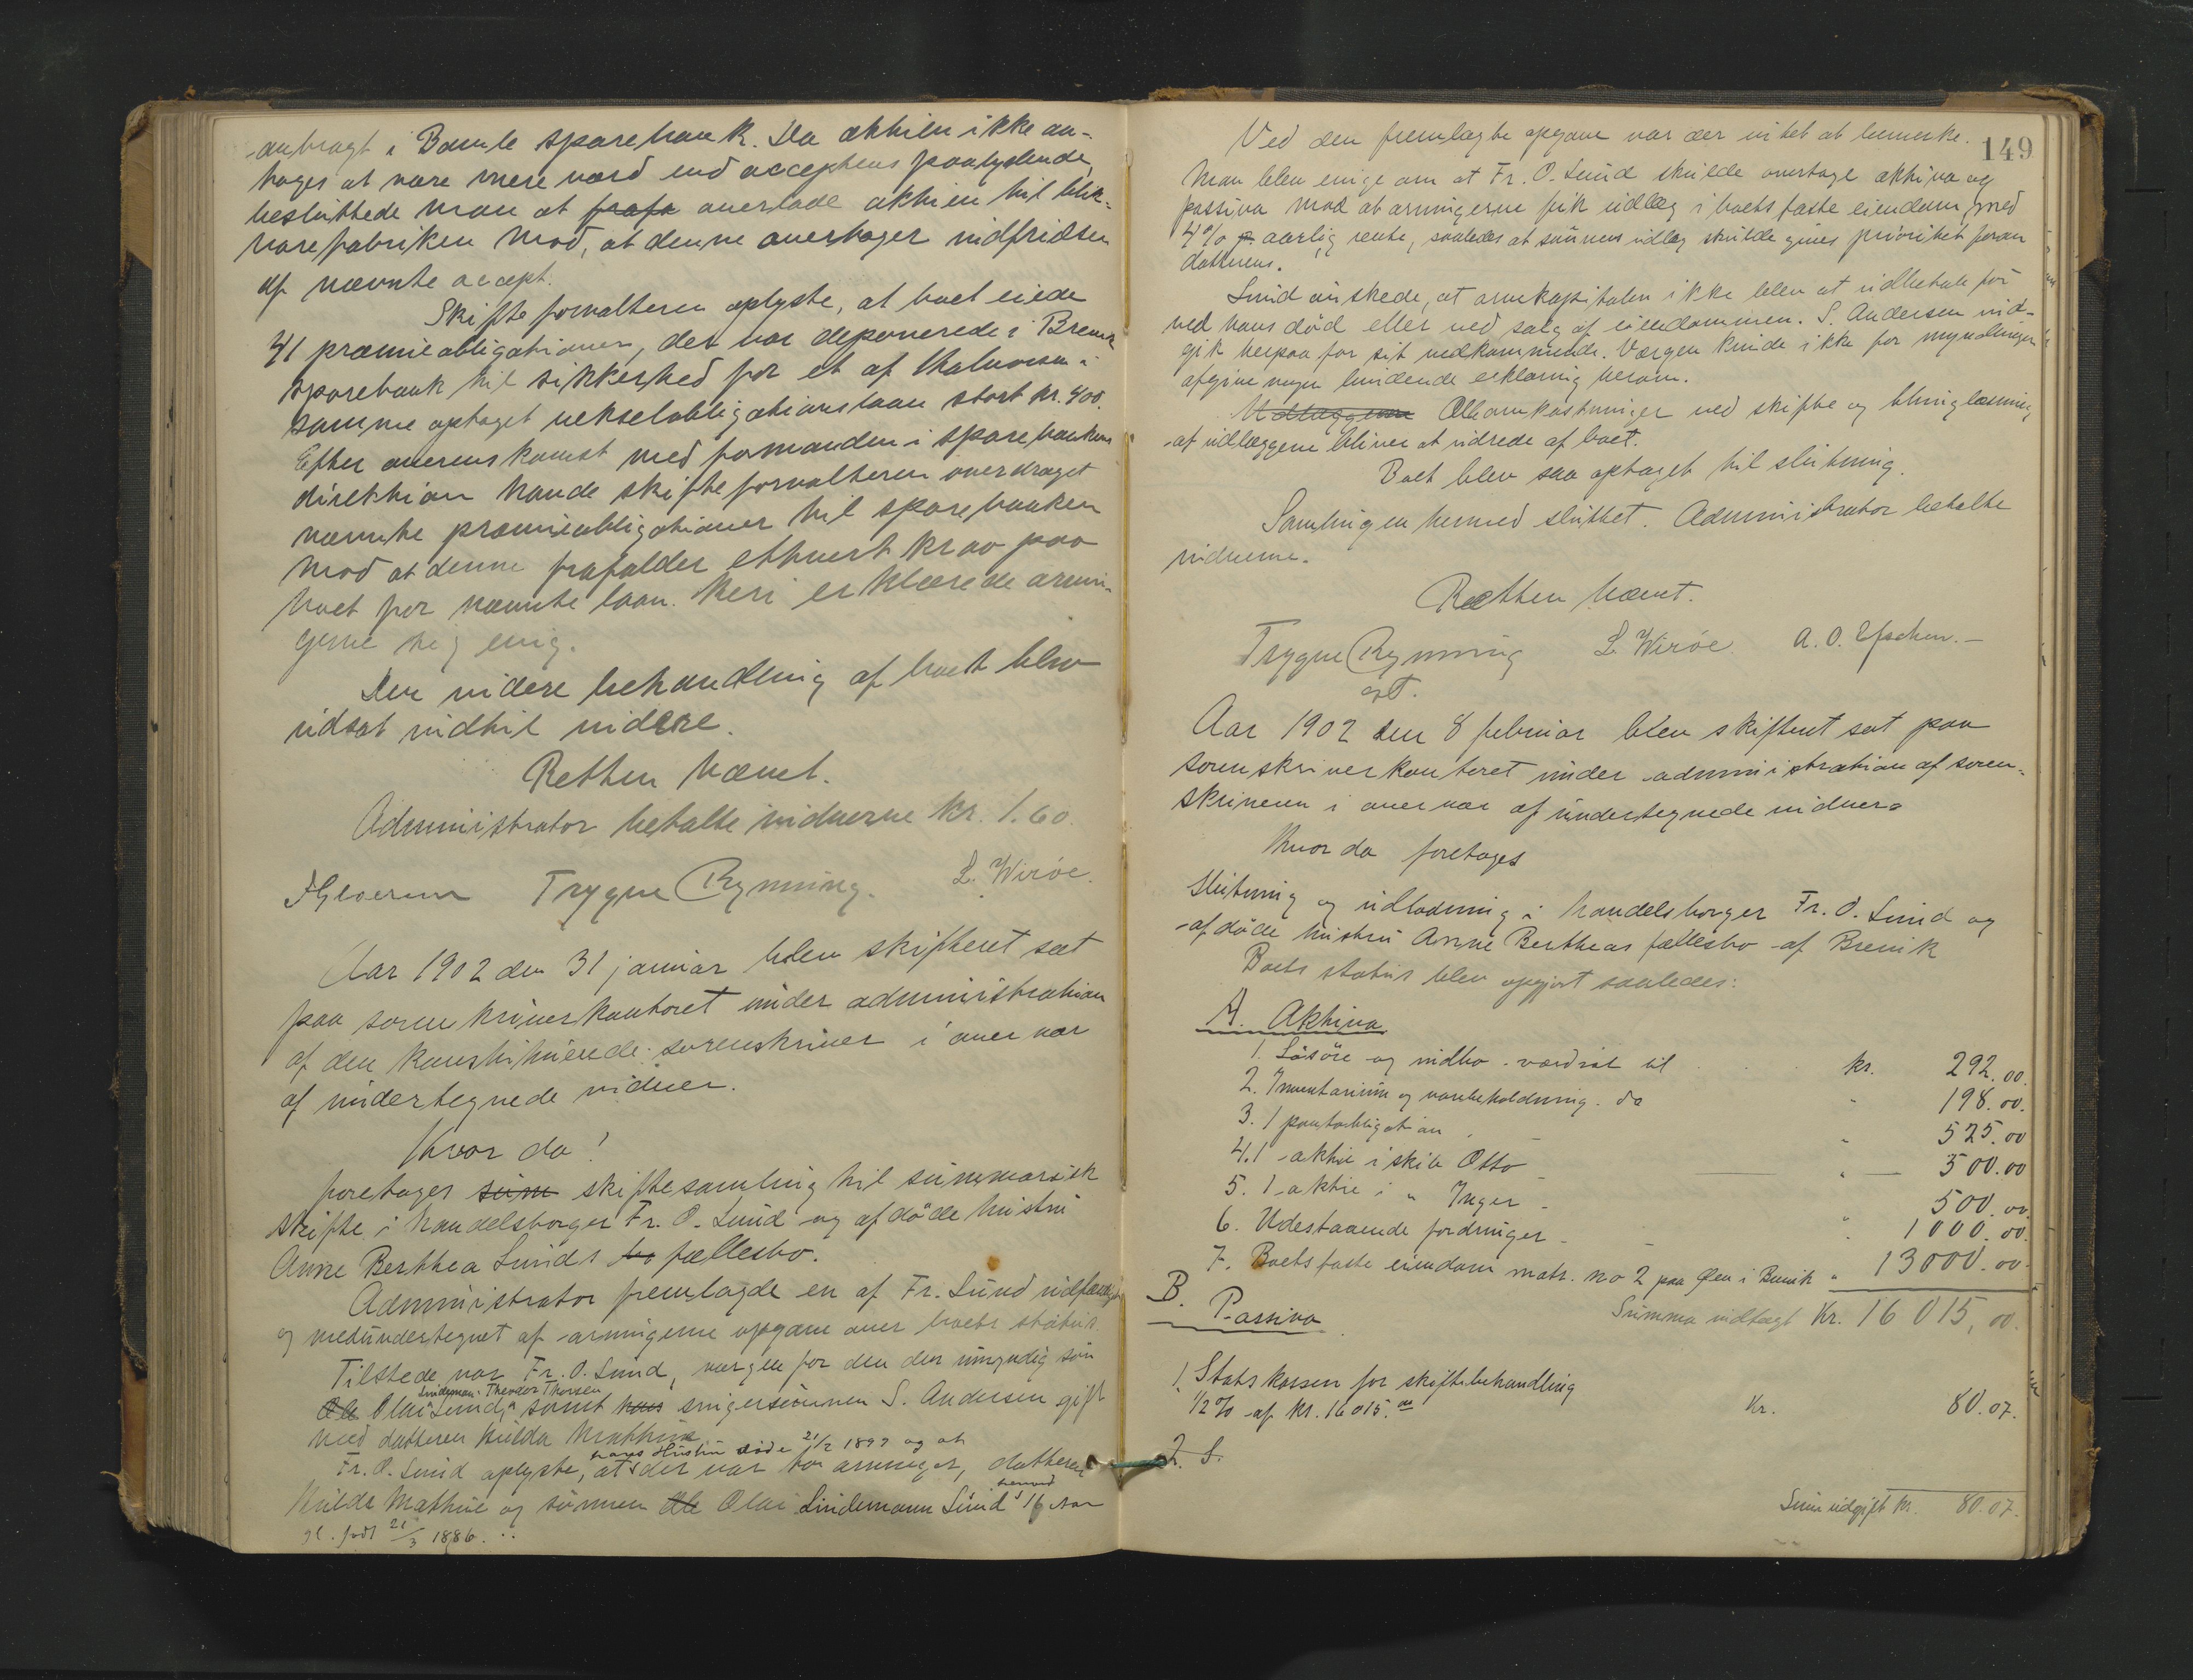 anbragt i Bamle sparebank. Da aktien ikke an-
tages at være mere værd end acceptens paalydende,
besluttede man at frafa overlade aktien til blik-
varefabriken mod, at denne overtager indfridsen
af nævnte accept.
Skifteforvalteren oplyste, at boet eiede
41 præmieobligationer, der var deponerede i Brevik
sparebank til sikkerhed for et af Halvorsen i
samme optaget vekselobligationslaan stort kr. 400.
Efter overenskomst med formanden i sparebankens
direktion havde skifteforvalteren overdraget
nævnte præmieobligationer til sparebanken
mod at denne frafalder ethvert krav paa
boet for nævnte laan. Heri erklærede arvin-
gerne sig enig.
Den videre behandling af boet blev
udsat indtil videre.
Retten hævet.
Administrator betalte vidnerne kr. 1.60.
Trygve Rynning. L. Wirøe.
Aar 1902 den 31 januar blev skifteret sat
paa sorenskriverkontoret under administration
af den konstituerede sorenskriver i overvær
af undertegnede vidner.
Hvor da!
foretages sum skiftesamling til summarisk
skifte i handelsborger Fr. O. Lund og afdøde hustru
Anne Berthea Lunds bo fællesbo.
Administrator fremlagde en af Fr. Lund udfærdiget
og medundertegnet af arvingerne opgave over boets status.
Tilstede var Fr. O. Lund, værgen for den umyndig søn
Lindeman: Theodor Thorsen
Ole Olai Lund, samt hans svigersønnen S. Andersen gift
med datteren Hulda Mathine
hans Hustru døde 21/2 1899 og at
Fr. O. Lund oplyste, at der var to arvinger, datteren
Hulda Mathine og sønnen Ole Olai Lindemann Lund 16 Aar
gl. født 21/3 1886.
149
Ved den fremlagte opgave var der intet at bemerke.
Man blev enige om at Fr. O. Lund skulde overtage aktiva og
passiva mod at arvingerne fik udlæg i boets faste eiendom med
4% p. aarlig rente, saaledes at sønnens udlæg skulde gives prioritet foran
datterens.
Lund ønskede, at arvekapitalen ikke blev at udbetale før
ved hans død eller ved salg af eiendommen. S. Andersen ind-
gik herpaa for sit vedkommende. Værgen kunde ikke for myndlingen
afgive nogen bindende erklæring herom.
Udlæggene Alle omkostninger ved skifte og thinglæsning
af udlæggene bliver at udrede af boet.
Boet blev saa optaget til slutning.
Samlingen hermed sluttet. Administrator betalte
vidnerne.
Retten hævet.
Trygve Rynning L. Wirøe A. O.
cst.
Aar 1902 den 8 februar blev skifteret sat paa
sorenskriverkontoret under administration af soren-
skriveren i overvær af undertegnede vidner
Hvor da foretages
slutning og udlodning i handelsborger Fr. O. Lund og
afdøde hustru Anne Bertheas fællesbo af Brevik
Boets status blev opgjort saaledes:
A. Aktiva
1. Løsøre og indbo værdsat til kr. 292.00.
2. Inventarium og varebeholdning do " 198.00.
3. 1 pantobligation " 525.00
4. 1 aktie i skib Otto " 500.00
5. 1 aktie i " Inger " 500.00
6. Udestaaende fordringer " 1000.00.
7. Boets faste eiendom matr. no 2 paa Øen i Brevik " 13000.00.
Summa indtægt Kr. 16 015,00.
B. Passiva
1. Statskassen for skiftebehandling
1/2 % af kr. 16015.00 Kr. 80.07.
2. S.
Sum udgift kr. 80.07.